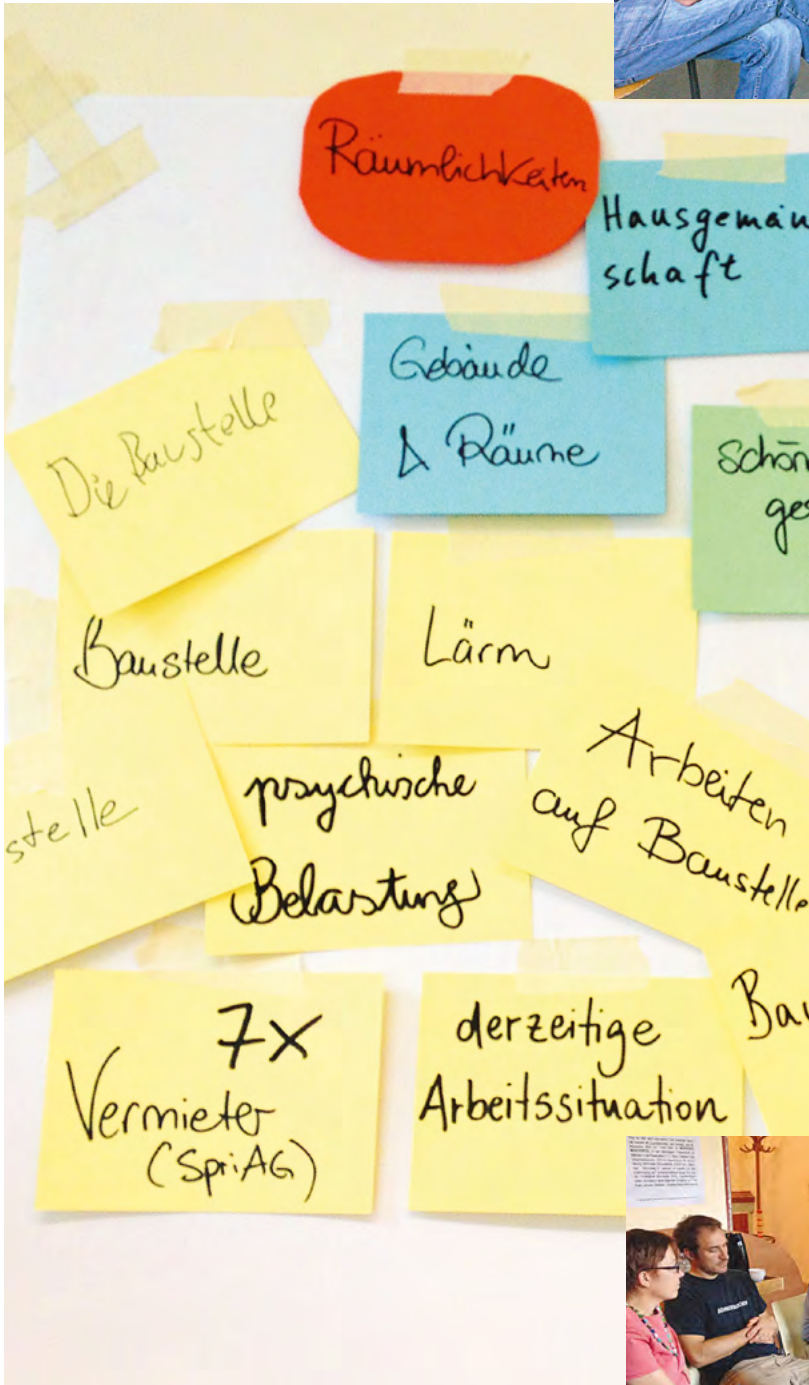 Räumlichkeiten
Hausgemein
schaft
Gebäude
& Räume
schön
ge
Die Baustelle
Baustelle
Lärm
stelle
psychische
Belastung
Arbeiten
auf Baustelle
Bau
7x
Vermieter
(SpriAG)
derzeitige
Arbeitssituation